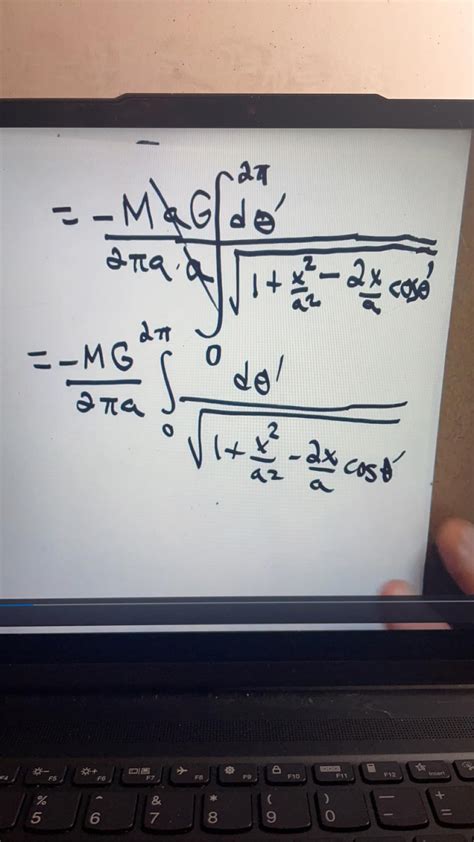 = -MaG/(2πa·a) ∫₀^2π dθ'/√(1 + x²/a² - 2x/a cosθ')
= -MG/(2πa) ∫₀^2π dθ'/√(1 + x²/a² - 2x/a cosθ')
F4 F5 F6 F7 F8 F9 F10 F11 F12 Insert
% ^ & * ( ) _ +
5 6 7 8 9 0 - =